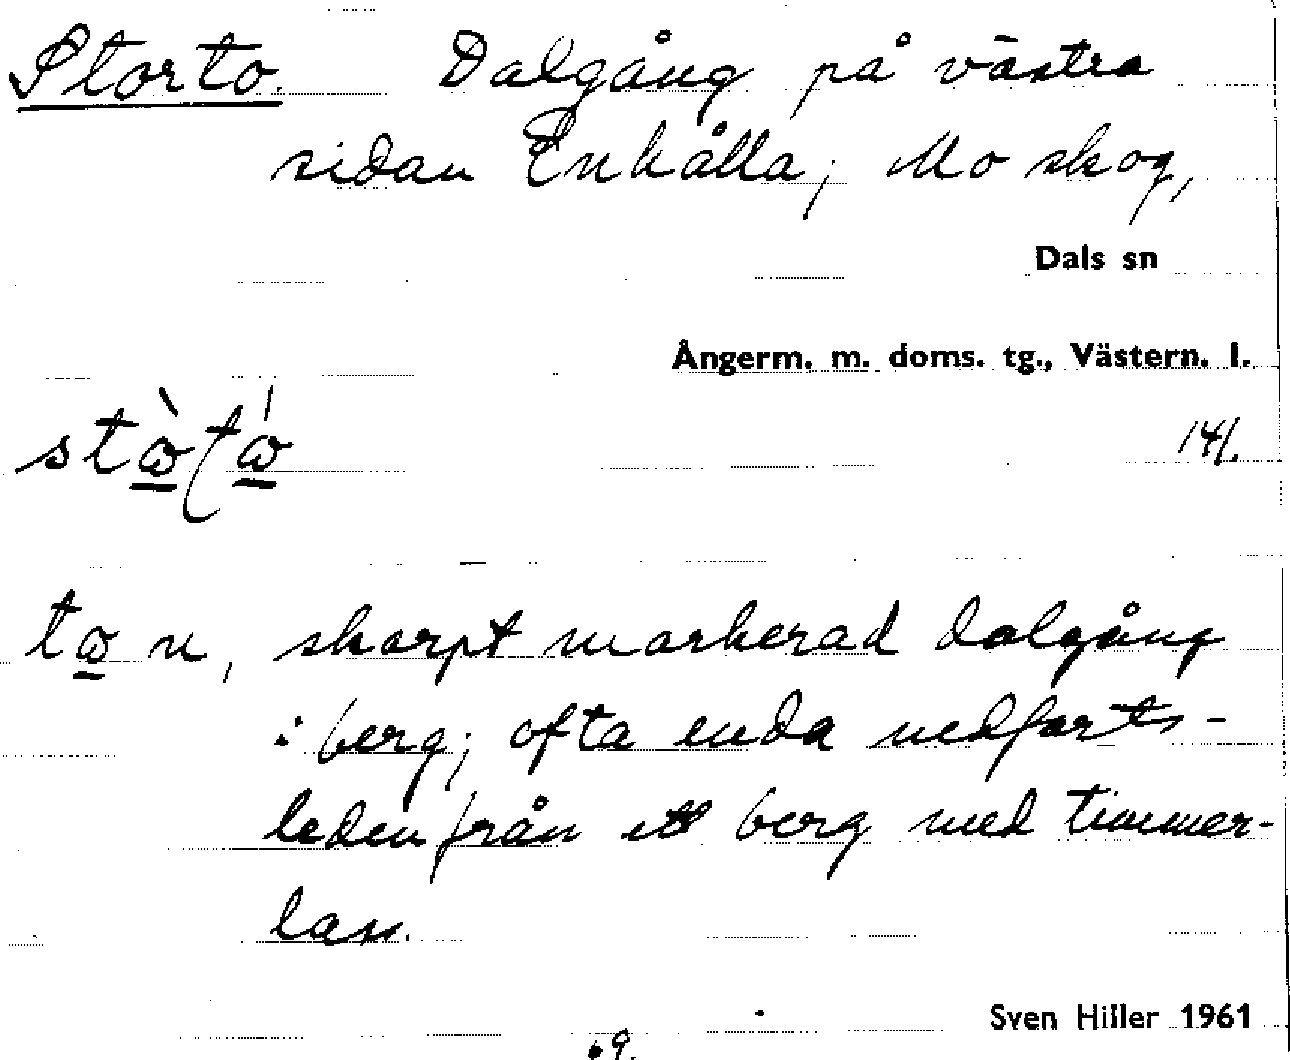 Storto. Dalgång på västra
sidan Enkälla; Mo skog,
Dals sn
Ångerm. m. doms. tg., Västern. l.
141.
n, skarpt markerad dalgång
i berg; ofta enda nedfarts-
leden från ett berg med timmer-
lass.
Sven Hiller 1961
69.